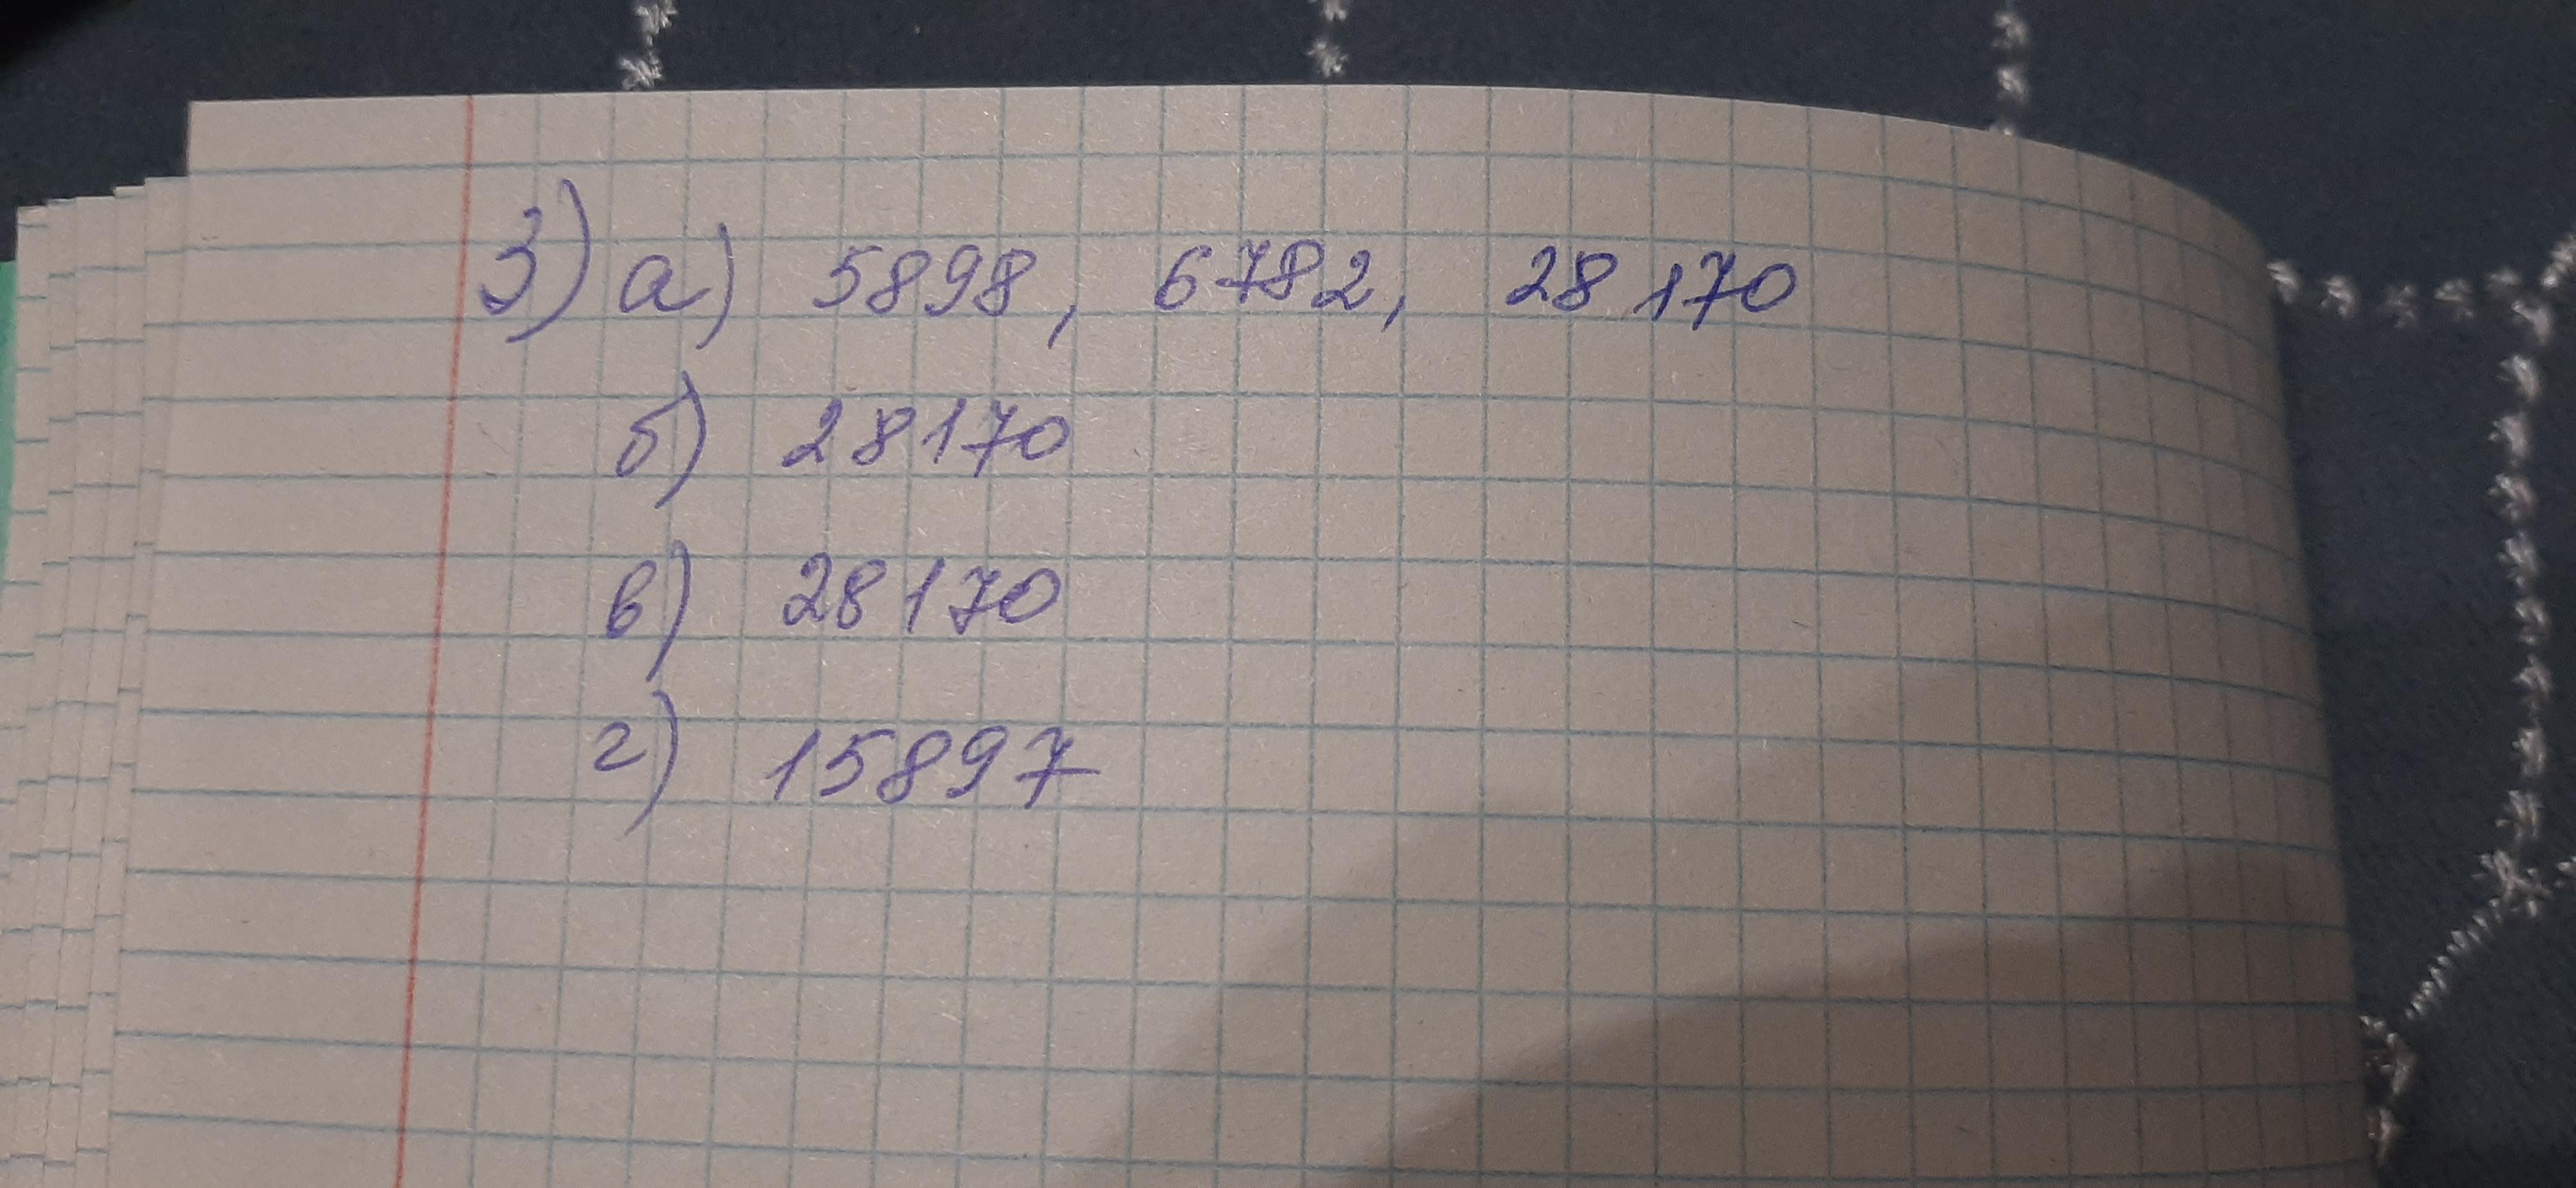 3) а) 5898, 6782, 28170
б) 28170
в) 28170
г) 15897